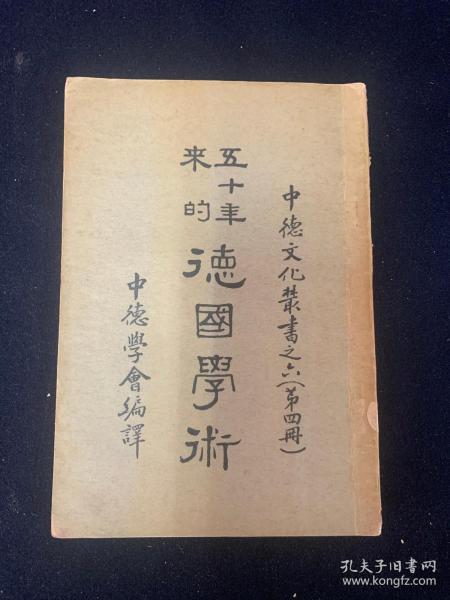 中德文化叢書之六(第四冊)
五十年来的
德國學術
中德學會編譯
孔夫子旧书网
www.kongfz.com